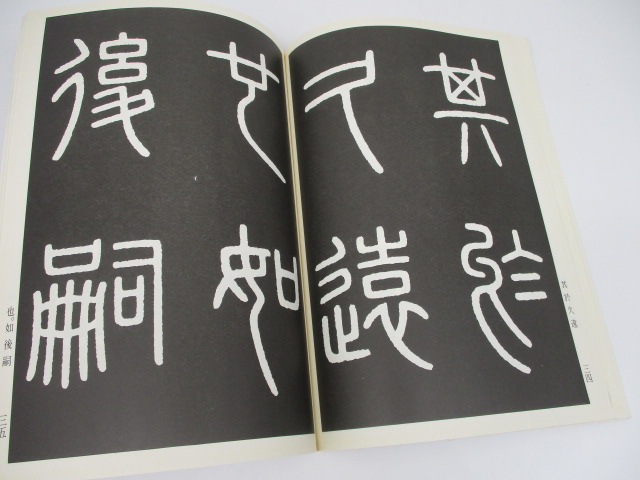 其於
久遠
其於久遠
三四
也如
後嗣
也。如後嗣
三五